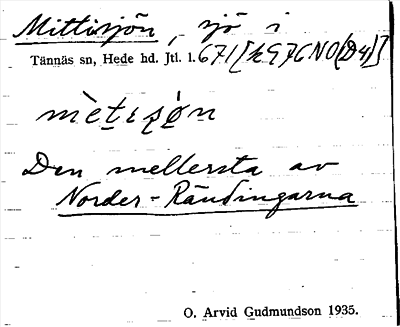 Mittisjön, sjö i
Tännäs sn, Hede hd. Jtl. l. 671[h976NO(D4)]
mètisø̣n
Den mellersta av
Norder-Rändingarna
O. Arvid Gudmundson 1935.